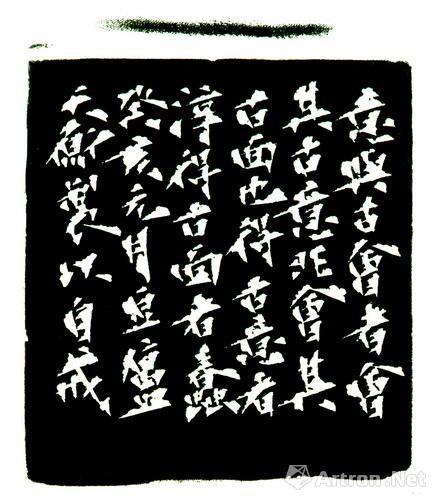 意與古會者會
其古意非會其
古面也得古意者
淳得古面者蠢
癸亥元月豆廬
天衡製以自戒
Artron.Net